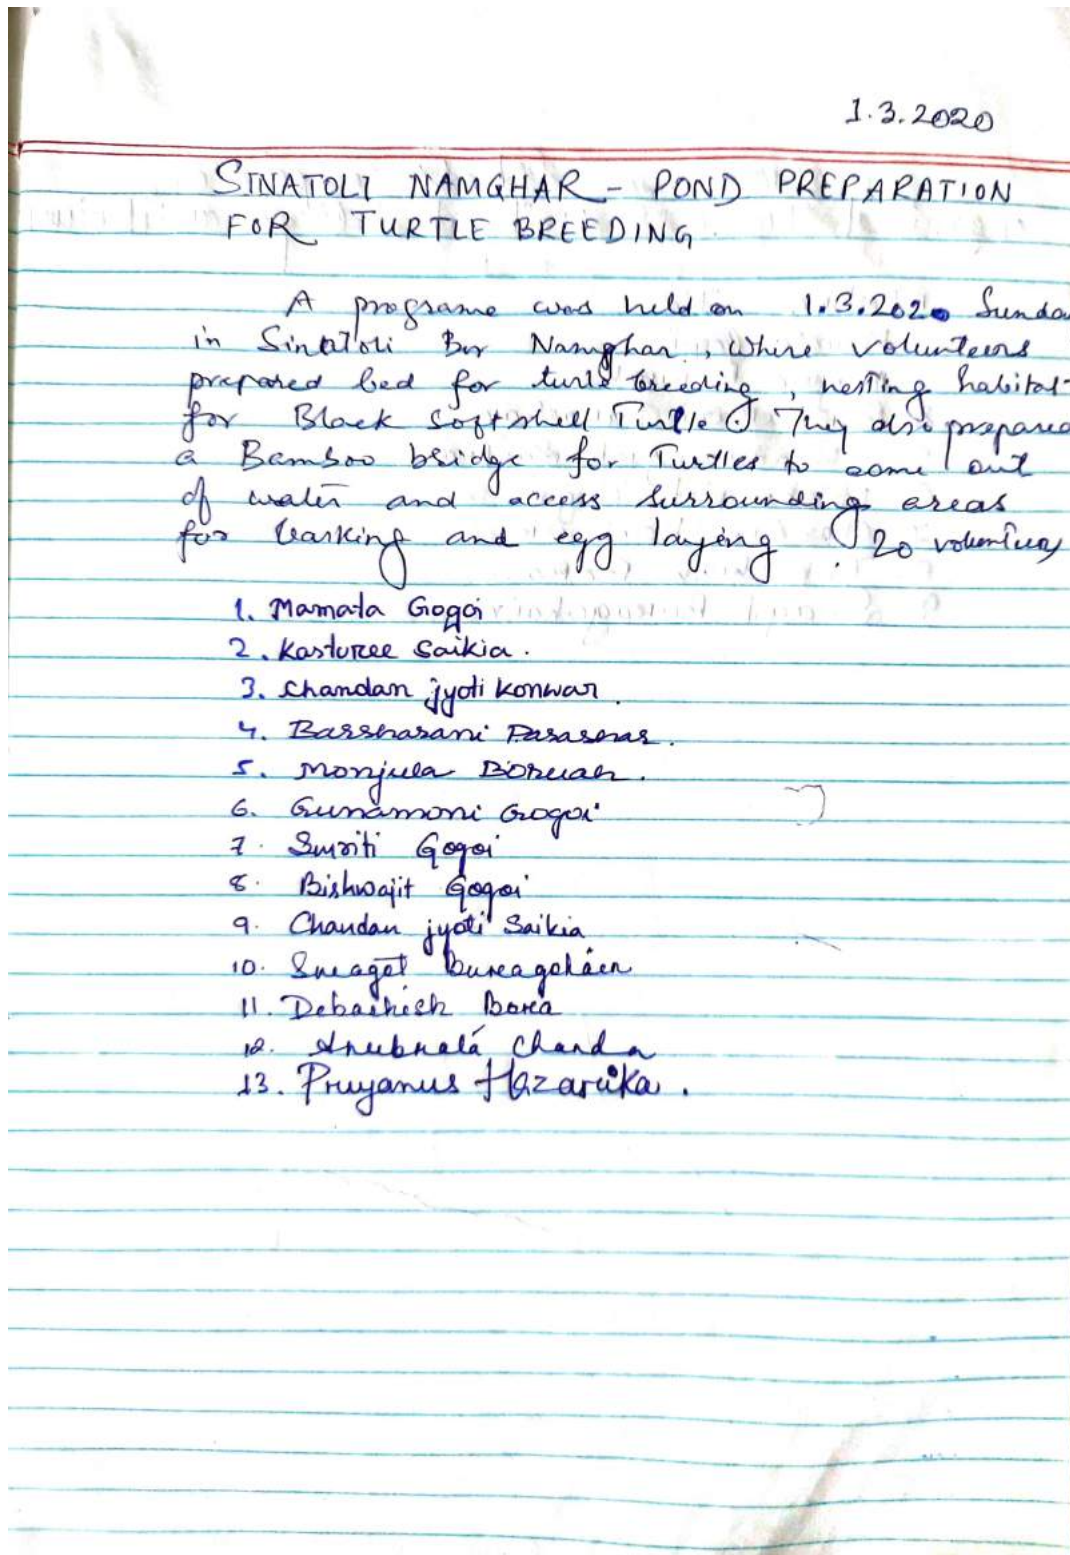 1.3.2020
SINATOLI NAMGHAR - POND PREPARATION
FOR TURTLE BREEDING
A programe was held on 1.3.2020 Sunda
in Sinatoli Bor Namghar, where volunteers
prepared bed for turtle breeding, nesting habitat
for Black Softshell Turtle. They also prepared
a Bamboo bridge for Turtles to come out
of water and access surrounding areas
for basking and egg laying. 20 volunteers
1. Mamata Gogoi
2. Kasturee Saikia.
3. Chandan jyoti Konwar.
4. Barsharani Parashar.
5. Monjula Boruah.
6. Gunamoni Gogoi
7. Smriti Gogoi
8. Bishwajit Gogoi
9. Chandan jyoti Saikia
10.
11. Debashish Bora
12. Chanda
13. Hazarika.